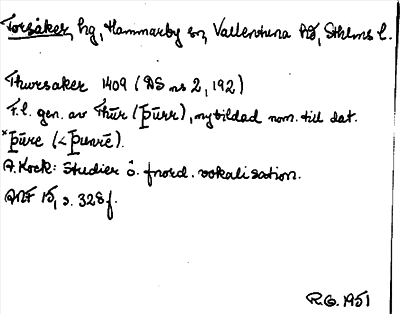 Torsåker, hg, Hammarby sn, Vallentuna hd, Sthlms l.
Thorsaker 1409 (DS ns 2, 192)
F.l. gen. av Thūr (Þūrr), nybildad nom. till dat.
*Þūre (< Þunrē).
A. Kock: Studier ö. fnord. vokalisation.
ANF 15, s. 328 f.
R.G. 1951